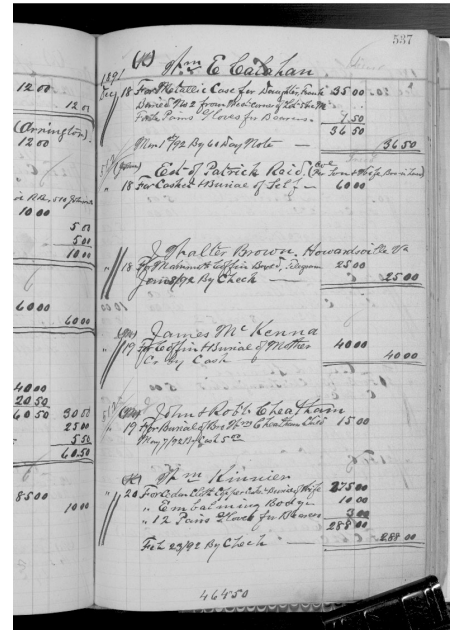 537
12 00
12 00
(Arrington)
12 00
10 00
5 00
5 00
10 00
60 00
60 00
40 00
20 50
60 50 30 00
25 00
5 50
60.50
85 00
10 00
1891
Wm E Calahan
Dec 18 For Metallic Case for Daughter, 35 00
1 50
36 50
Mar 1st/92 By 60 day Note — 36 50
Est of Patrick Reid,
" 18 For Casket & Burial of Self — 60 00
J Walter Brown, Howardsville Va
" 18 For Mammoth Coffin Boxed, 25 00
Jan /92 By Check — 25 00
James McKenna
" 19 For Coffin & Burial of Mother 40 00
Co By Cash 40 00
John & Robt Cheatham
" 19 For Burial of Bro Wm Cheatham Child 15 00
May 7/92 By Cash 5 00
Wm Kinnier
" 20 For & Burial of Wife 275 00
" Embalming Body — 10 00
" 12 Pairs Gloves for Bearers 3 00
288 00
Feb 23/92 By Check — 288 00
46450